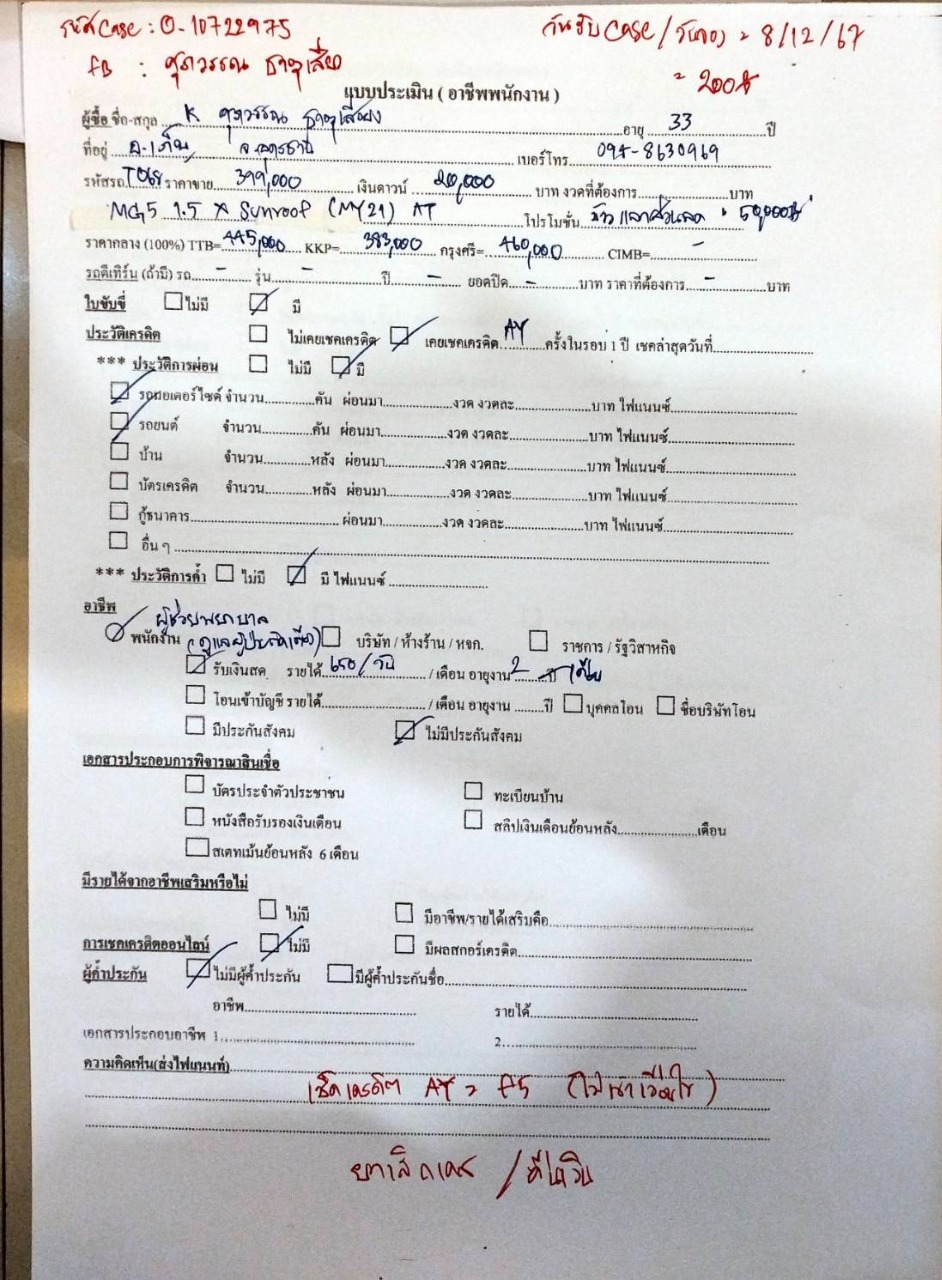 รหัส Case : 0-10722975
วันรับ Case / = 8/12/67
fB : ศุภวรรณ ธาตุเสี่ยง
= 200฿
แบบประเมิน ( อาชีพพนักงาน )
ผู้ซื้อ ชื่อ-สกุล K ศุภวรรณ ธาตุเสี่ยง อายุ 33 ปี
ที่อยู่ จ.อุดรธานี เบอร์โทร 094-8630969
รหัสรถ T068 ราคาขาย 399,000 เงินดาวน์ 200,000 บาท งวดที่ต้องการ บาท
MG5 1.5 X Sunroof (MY21) AT โปรโมชั่น 50,000฿
ราคากลาง (100%) TTB= 445,000 KKP= 383,000 กรุงศรี= 460,000 CIMB= -
รถตีเทิร์น (ถ้ามี) รถ - รุ่น - ปี - ยอดปิด - บาท ราคาที่ต้องการ - บาท
ใบขับขี่ ไม่มี มี
ประวัติเครดิต ไม่เคยเชคเครดิต เคยเชคเครดิต AY ครั้งในรอบ 1 ปี เชคล่าสุดวันที่
*** ประวัติการผ่อน ไม่มี มี
รถมอเตอร์ไซด์ จำนวน คัน ผ่อนมา งวด งวดละ บาท ไฟแนนซ์
รถยนต์ จำนวน คัน ผ่อนมา งวด งวดละ บาท ไฟแนนซ์
บ้าน จำนวน หลัง ผ่อนมา งวด งวดละ บาท ไฟแนนซ์
บัตรเครดิต จำนวน หลัง ผ่อนมา งวด งวดละ บาท ไฟแนนซ์
กู้ธนาคาร ผ่อนมา งวด งวดละ บาท ไฟแนนซ์
อื่น ๆ
*** ประวัติการค้ำ ไม่มี มี ไฟแนนซ์
อาชีพ
ผู้ช่วยพยาบาล
พนักงาน (ดูแลผู้ป่วยติดเตียง) บริษัท / ห้างร้าน / หจก. ราชการ / รัฐวิสาหกิจ
รับเงินสด รายได้ 650/วัน / เดือน อายุงาน 2 ปี เดือน
โอนเข้าบัญชี รายได้ / เดือน อายุงาน ปี บุคคลโอน ชื่อบริษัทโอน
มีประกันสังคม ไม่มีประกันสังคม
เอกสารประกอบการพิจารณาสินเชื่อ
บัตรประจำตัวประชาชน ทะเบียนบ้าน
หนังสือรับรองเงินเดือน สลิปเงินเดือนย้อนหลัง เดือน
สเตทเม้นย้อนหลัง 6 เดือน
มีรายได้จากอาชีพเสริมหรือไม่
ไม่มี มีอาชีพ/รายได้เสริมคือ
การเชคเครดิตออนไลน์ ไม่มี มีผลสกอร์เครดิต
ผู้ค้ำประกัน ไม่มีผู้ค้ำประกัน มีผู้ค้ำประกันชื่อ
อาชีพ รายได้
เอกสารประกอบอาชีพ 1. 2.
ความคิดเห็น(ส่งไฟแนนท์)
เช็คเครดิต AY = F5 (ไม่เข้าเงื่อนไข)
ยกเลิกเคส / คืนเงิน